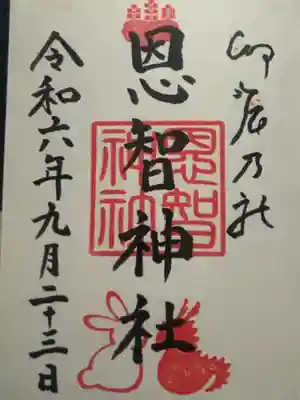 恩智神社
令和六年九月二十三日
恩智
神社